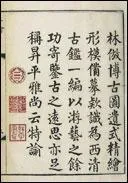 林倣博古圖遺式精繪
形模備摹款識為西清
古鑑一編以游藝之餘
功寄鑒古之遠思亦足
稱昇平雅尚云特諭